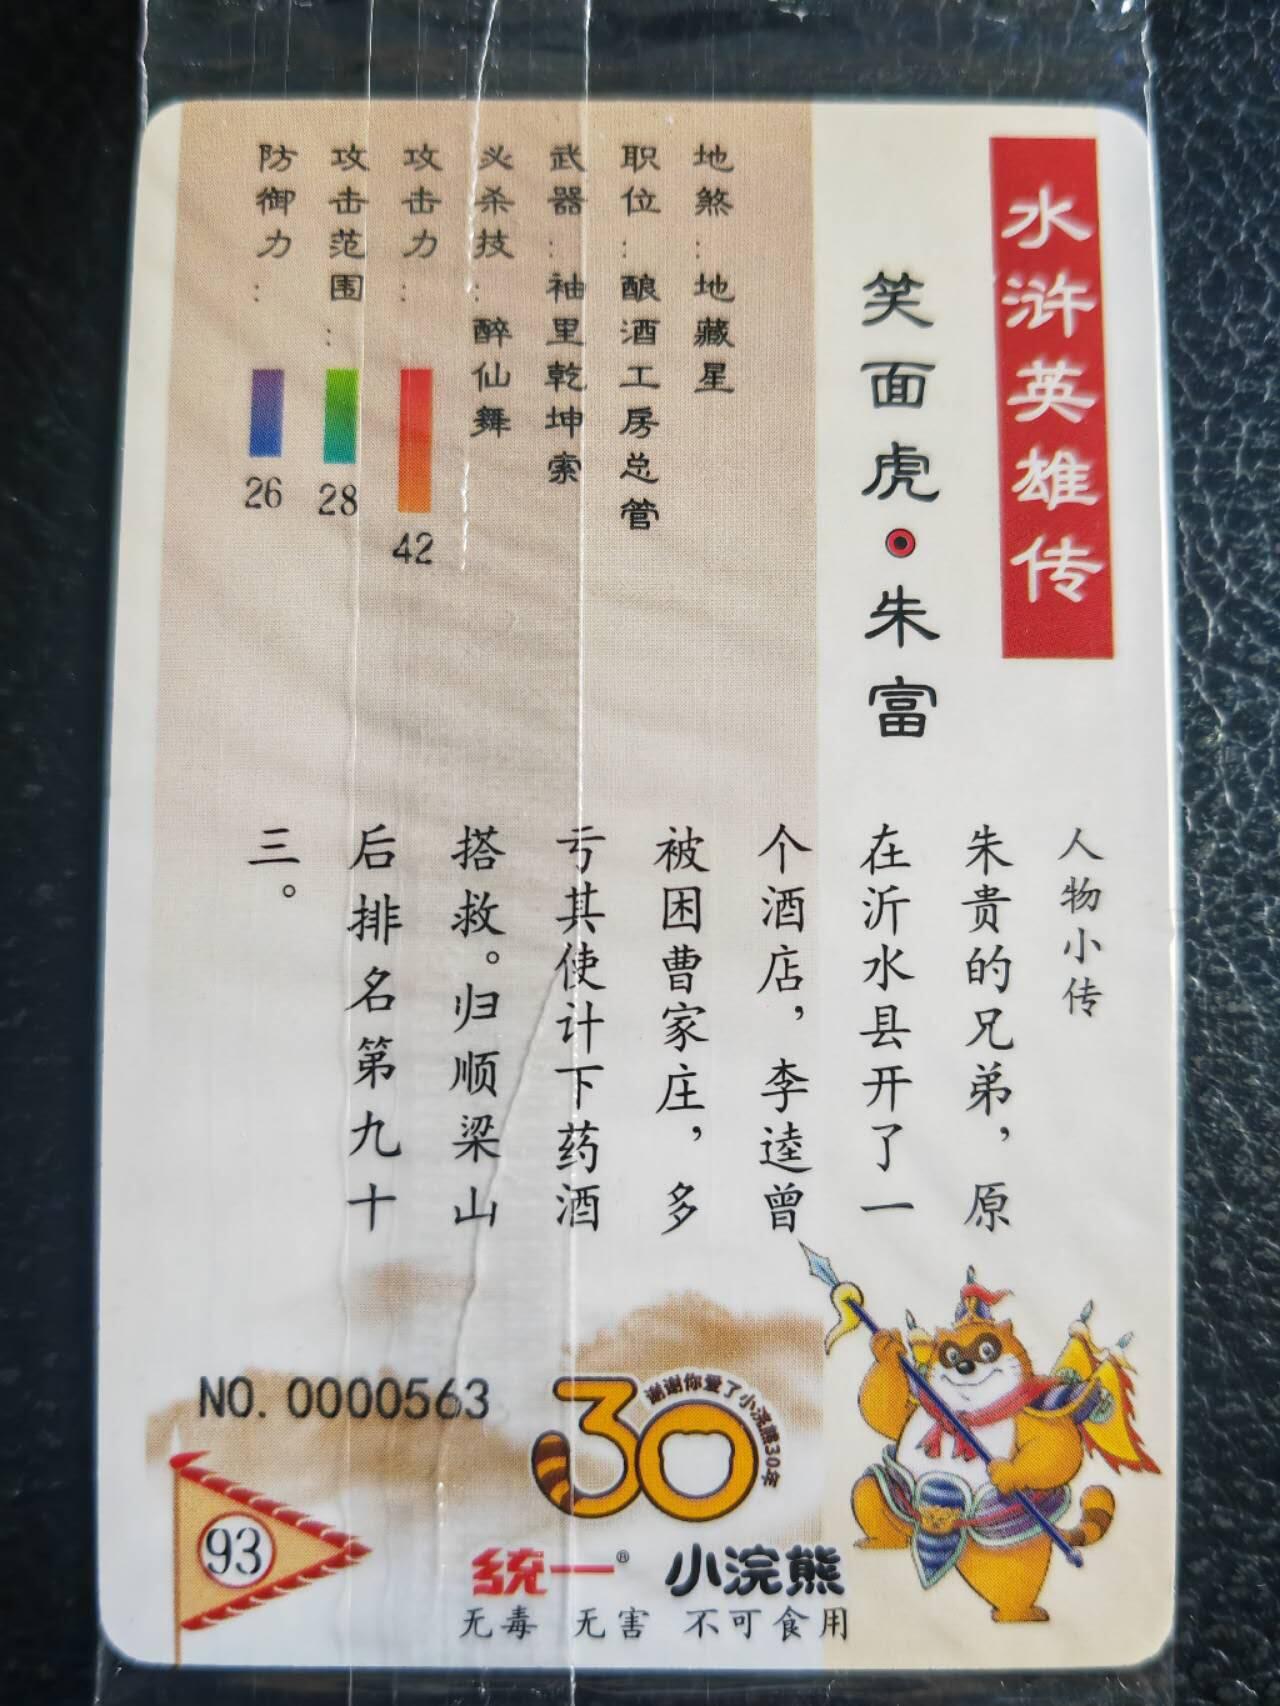 水浒英雄传
笑面虎·朱富
地煞：地藏星
职位：酿酒工房总管
武器：袖里乾坤索
必杀技：醉仙舞
攻击力：
42
攻击范围：
28
防御力：
26
人物小传
朱贵的兄弟，原
在沂水县开了一
个酒店，李逵曾
被困曹家庄，多
亏其使计下药酒
搭救。归顺梁山
后排名第九十
三。
NO. 0000563
30
谢谢你爱了小浣熊30年
93
统一® 小浣熊
无毒 无害 不可食用